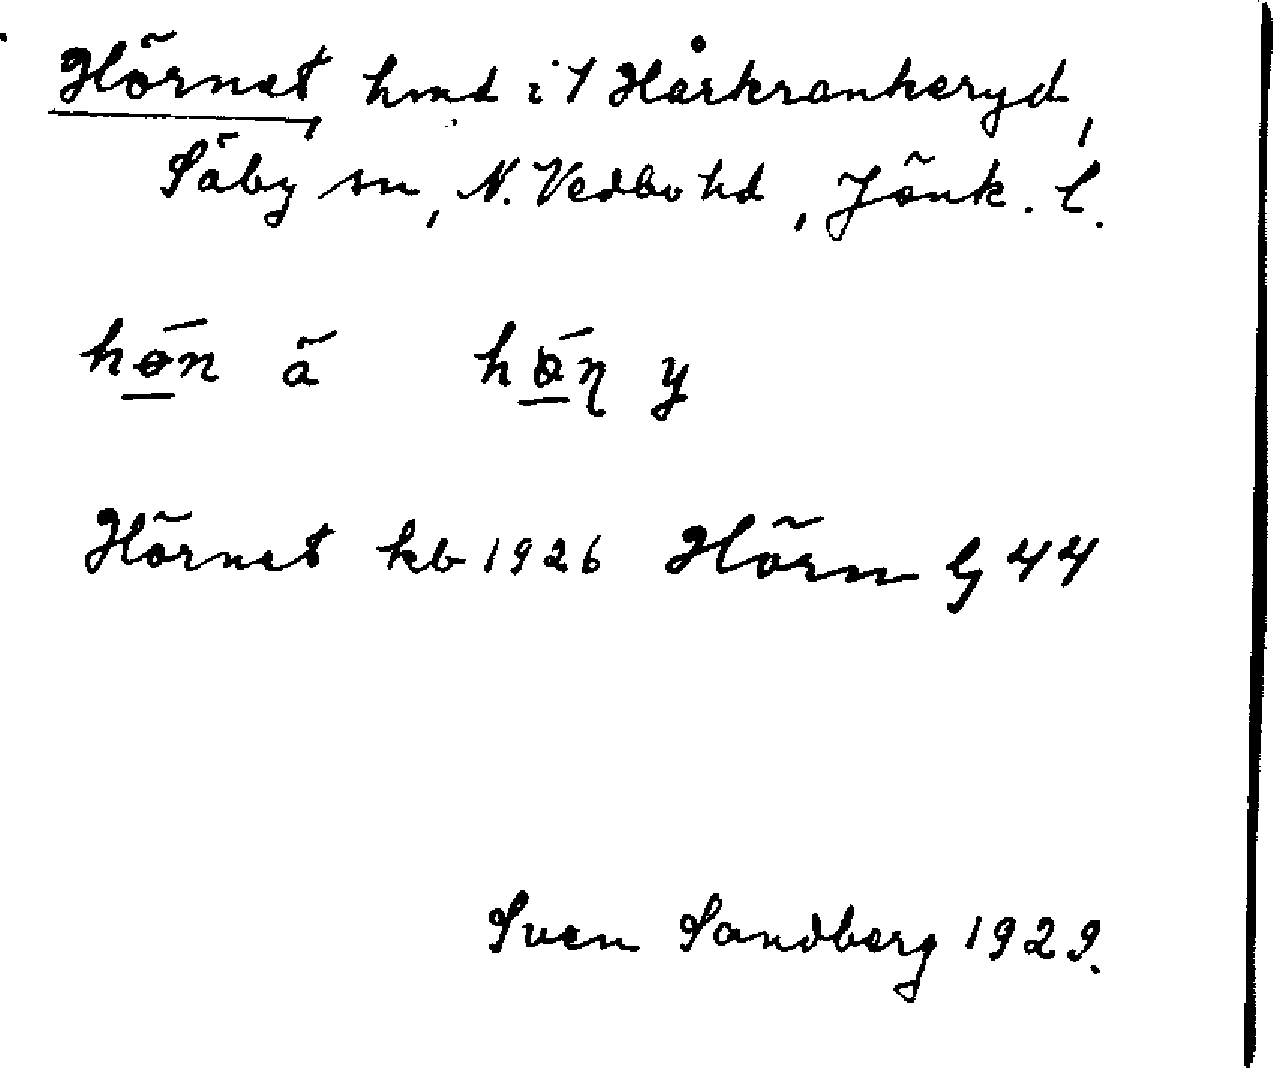 Hörnet, hmd i 1 Hårkrankeryd,
Säby sn, N. Vedbo hd, Jönk. l.
hǿ̱n ä hǿ̱ɳ y
Hörnet kb 1926 Hörn G 44
Sven Sandberg 1929.